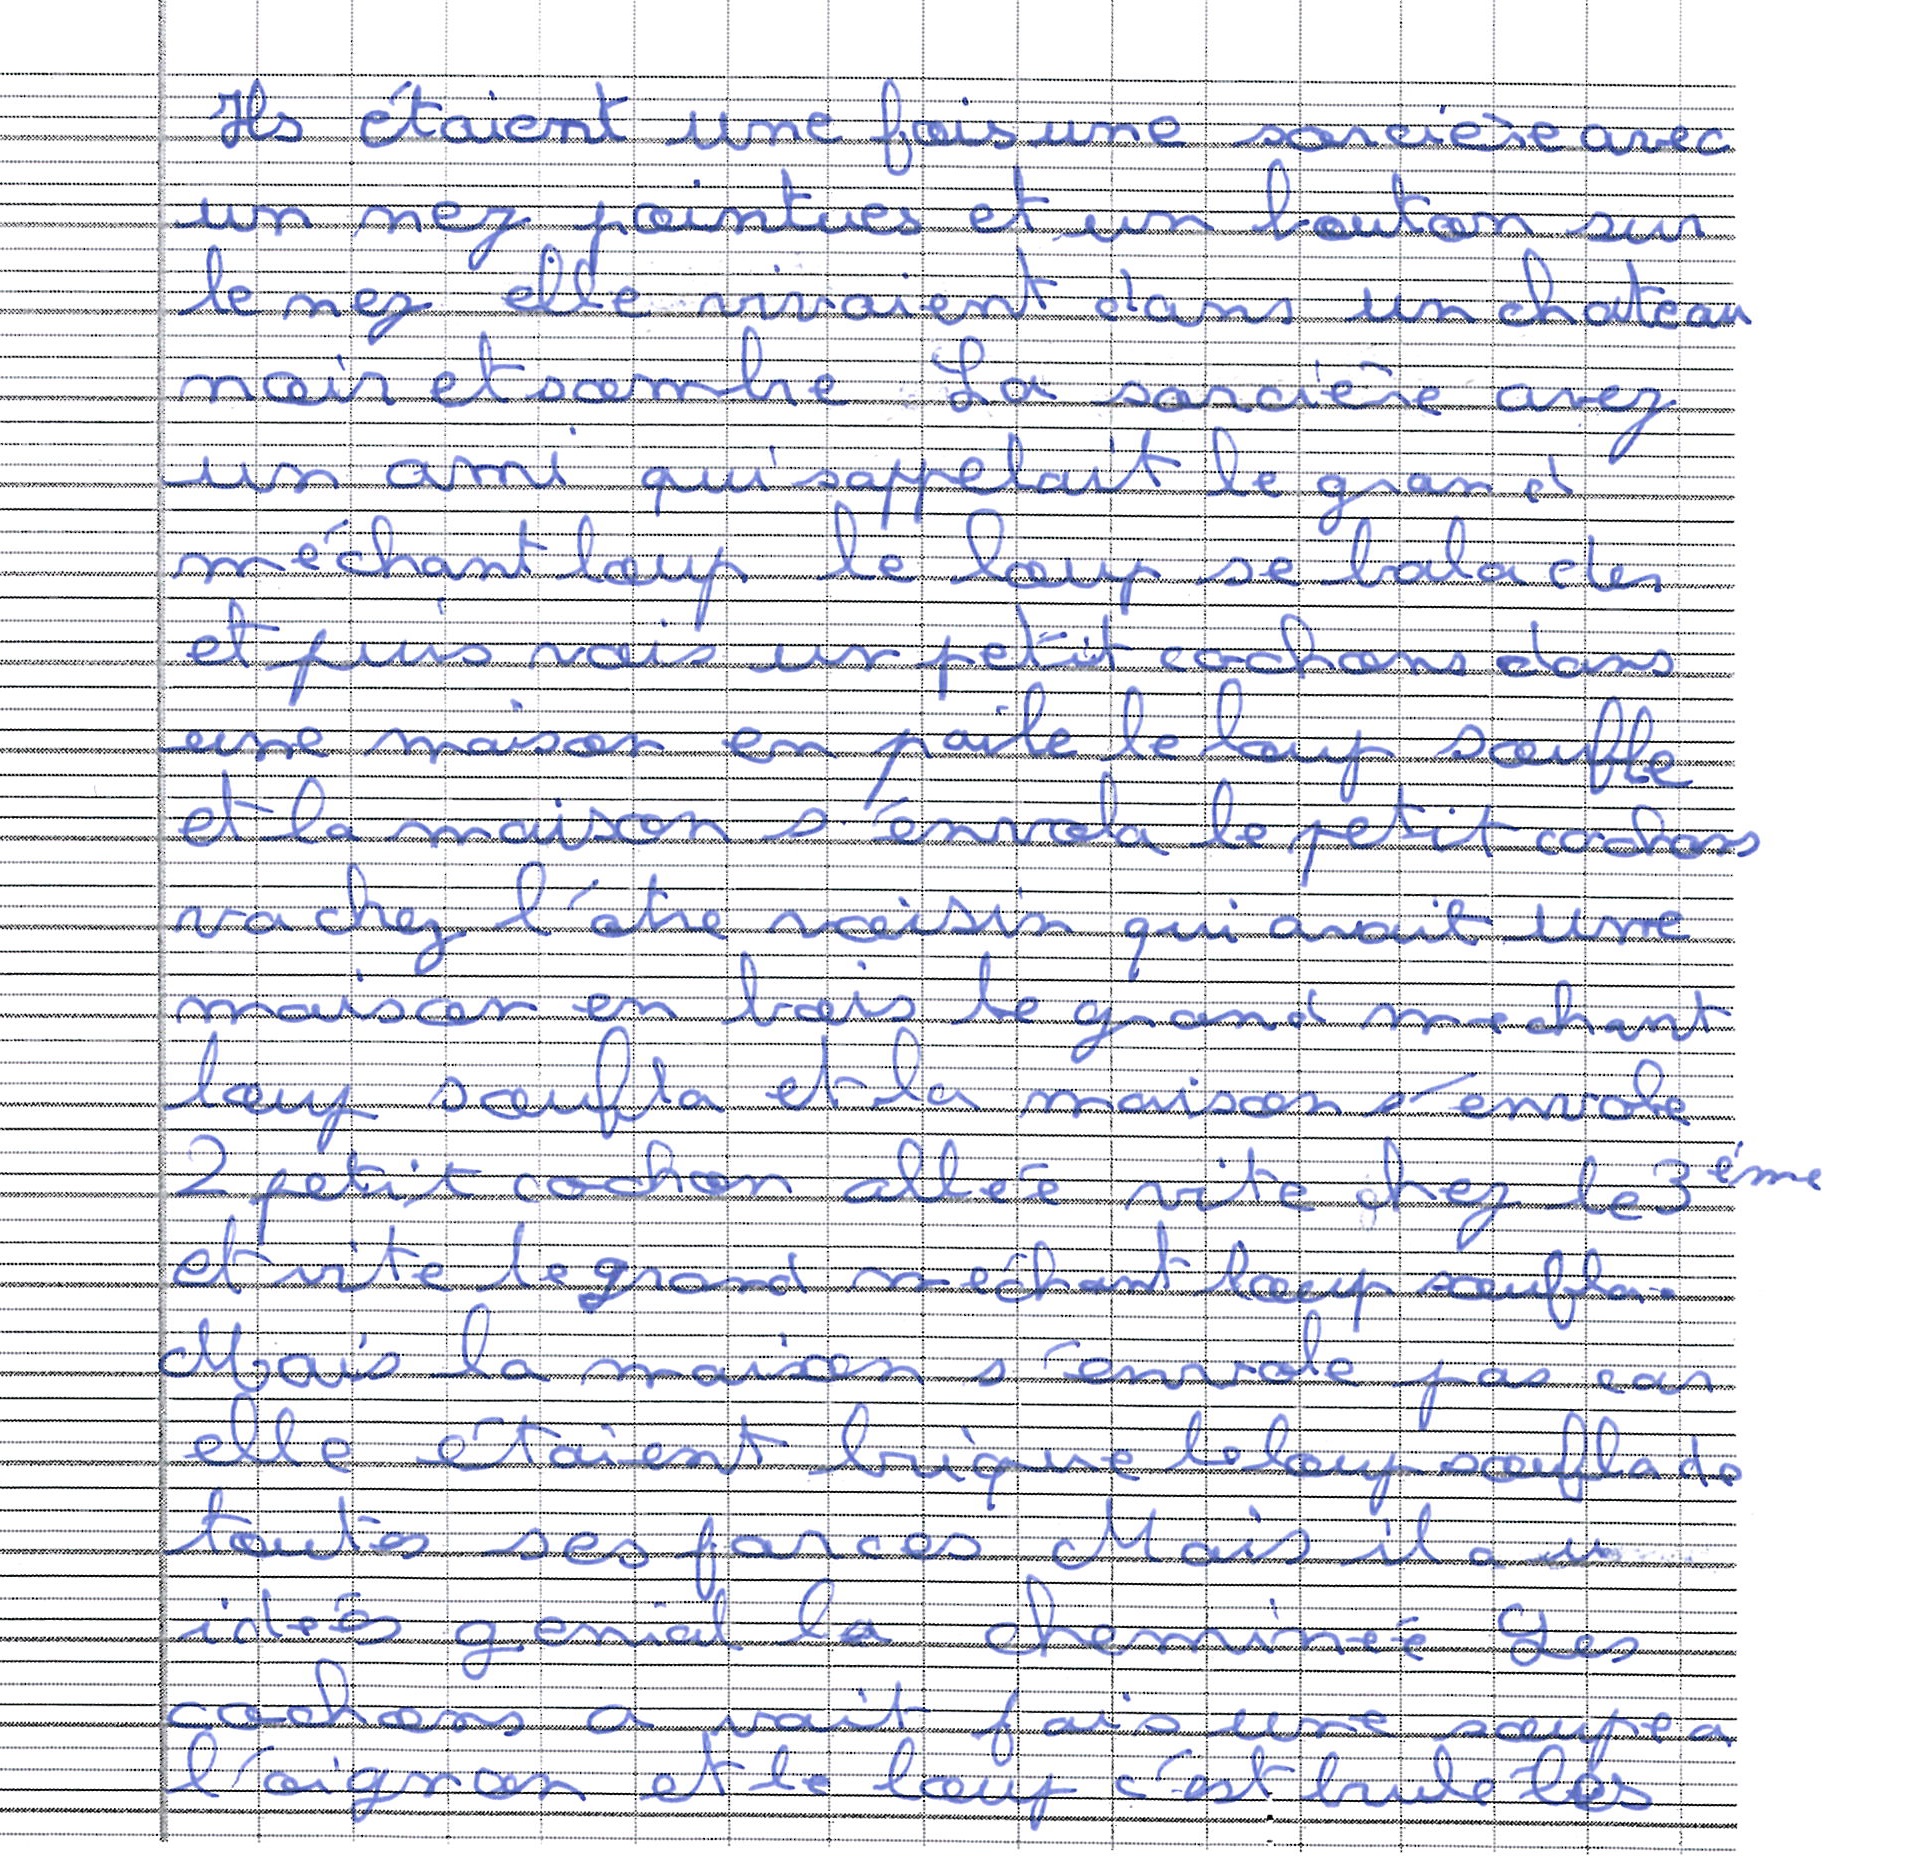 Ils étaient une fois une sorcière avec
un nez pointues et un bouton sur
le nez elle vivaient dans un chateau
noir et sombre La sorcière avez
un ami qui sappelait le grand
méchant loup le loup se balader
et puis vois un petit cochons dans
une maison en paile le loup soufle
et la maison s'envola le petit cochons
va chez l'otre voisin qui avait une
maison en bois le grand mechant
loup soufla et la maison s'envole
2 petit cochon allée vite chez le 3ème
et vite le grand méchant loup soufla.
Mais la maison s'envole pas car
elle étaient brique le loup soufla de
toutes ses forces Mais il a u
ideés genial la cheminée Les
cochons a vait fais une soupe a
l'oignon et le loup c'est brule les